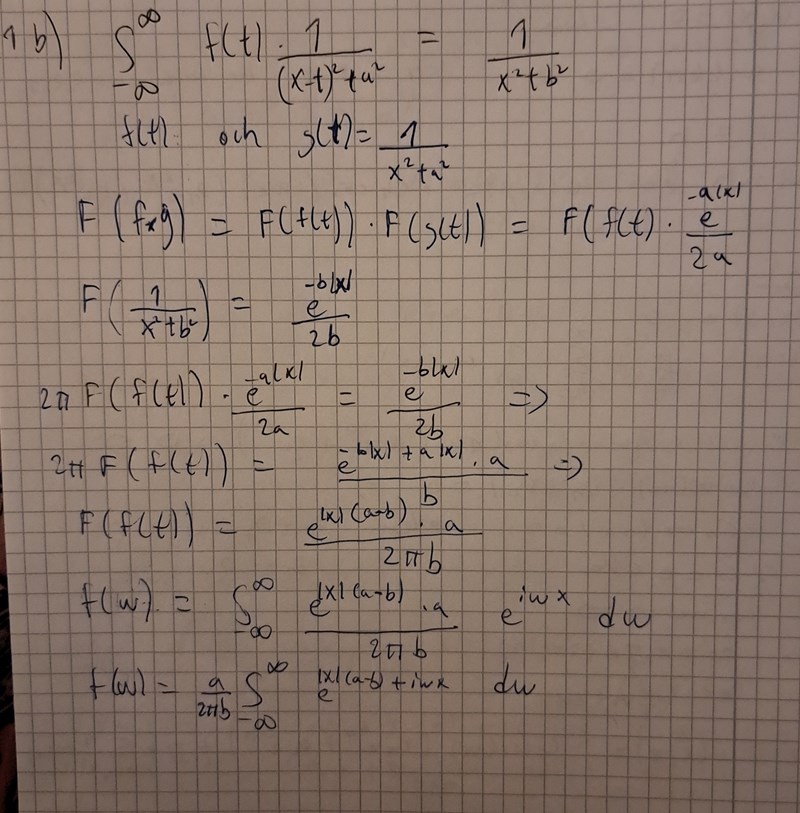 1 b) ∫_{-∞}^{∞} f(t) · 1/((x-t)²+a²) = 1/(x²+b²)
f(t) och g(t) = 1/(x²+a²)
F(f*g) = F(f(t)) · F(g(t)) = F(f(t) · e^{-a|x|}/2a
F(1/(x²+b²)) = e^{-b|x|}/2b
2π F(f(t)) · e^{-a|x|}/2a = e^{-b|x|}/2b =>
2π F(f(t)) = e^{-b|x| + a|x|} · a/b =>
F(f(t)) = e^{|x|(a-b)} · a/2πb
f(w) = ∫_{-∞}^{∞} e^{|x|(a-b)} · a/2πb e^{iwx} dw
f(w) = a/2πb ∫_{-∞}^{∞} e^{|x|(a-b) + iwx} dw